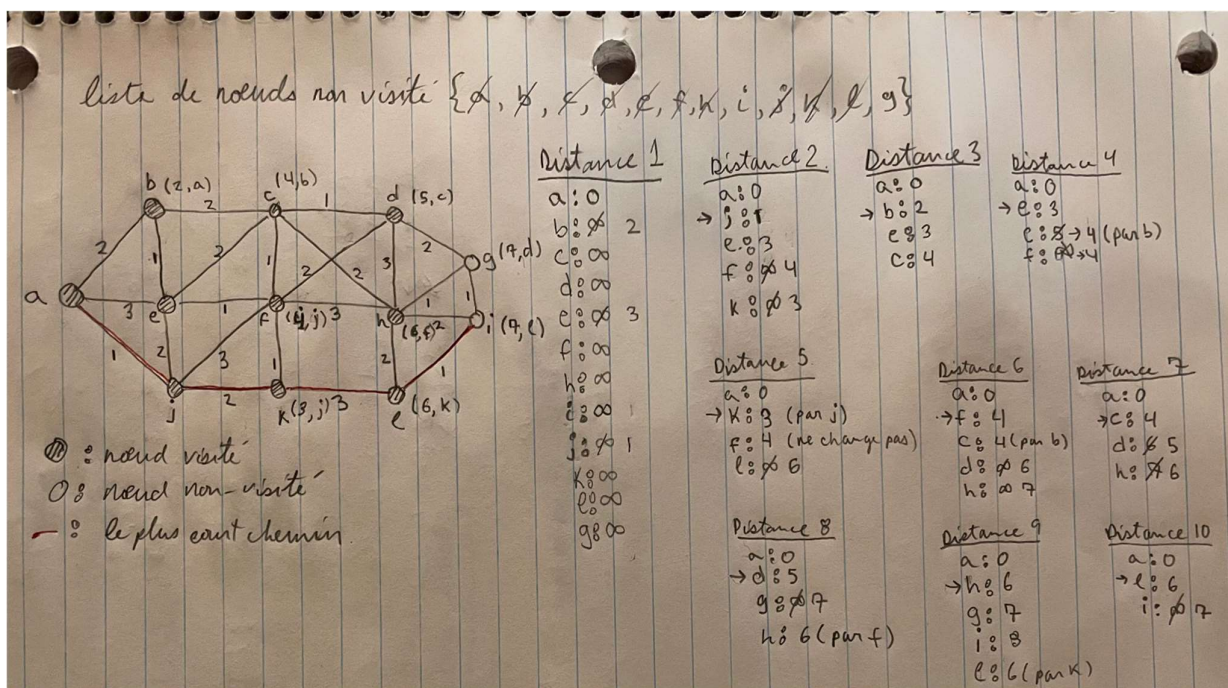 liste de nœuds non visité {a, b, c, d, e, f, h, i, j, k, l, g}
b (2,a)
2
c (4,b)
1
d (5,c)
2
1
2
1
2
2
3
2
g (7,d)
a
3
e
1
f (4,j)
3
h (6,f)
1
2
1
i (7,l)
1
2
3
1
2
1
j
2
k (3,j)
3
l (6,k)
: nœud visité
: nœud non-visité
: le plus court chemin
Distance 1
a : 0
b : ∞ 2
c : ∞
d : ∞
e : ∞ 3
f : ∞
h : ∞
i : ∞
j : ∞ 1
k : ∞
l : ∞
g : ∞
Distance 2
a : 0
→ j : 1
e : 3
f : ∞ 4
k : ∞ 3
Distance 3
a : 0
→ b : 2
e : 3
c : 4
Distance 4
a : 0
→ e : 3
c : 5 → 4 (par b)
f : → 4
Distance 5
a : 0
→ k : 3 (par j)
f : 4 (ne change pas)
l : ∞ 6
Distance 6
a : 0
→ f : 4
c : 4 (par b)
d : ∞ 6
h : ∞ 7
Distance 7
a : 0
→ c : 4
d : 6 5
h : 7 6
Distance 8
a : 0
→ d : 5
g : ∞ 7
h : 6 (par f)
Distance 9
a : 0
→ h : 6
g : 7
i : 8
l : 6 (par k)
Distance 10
a : 0
→ l : 6
i : ∞ 7